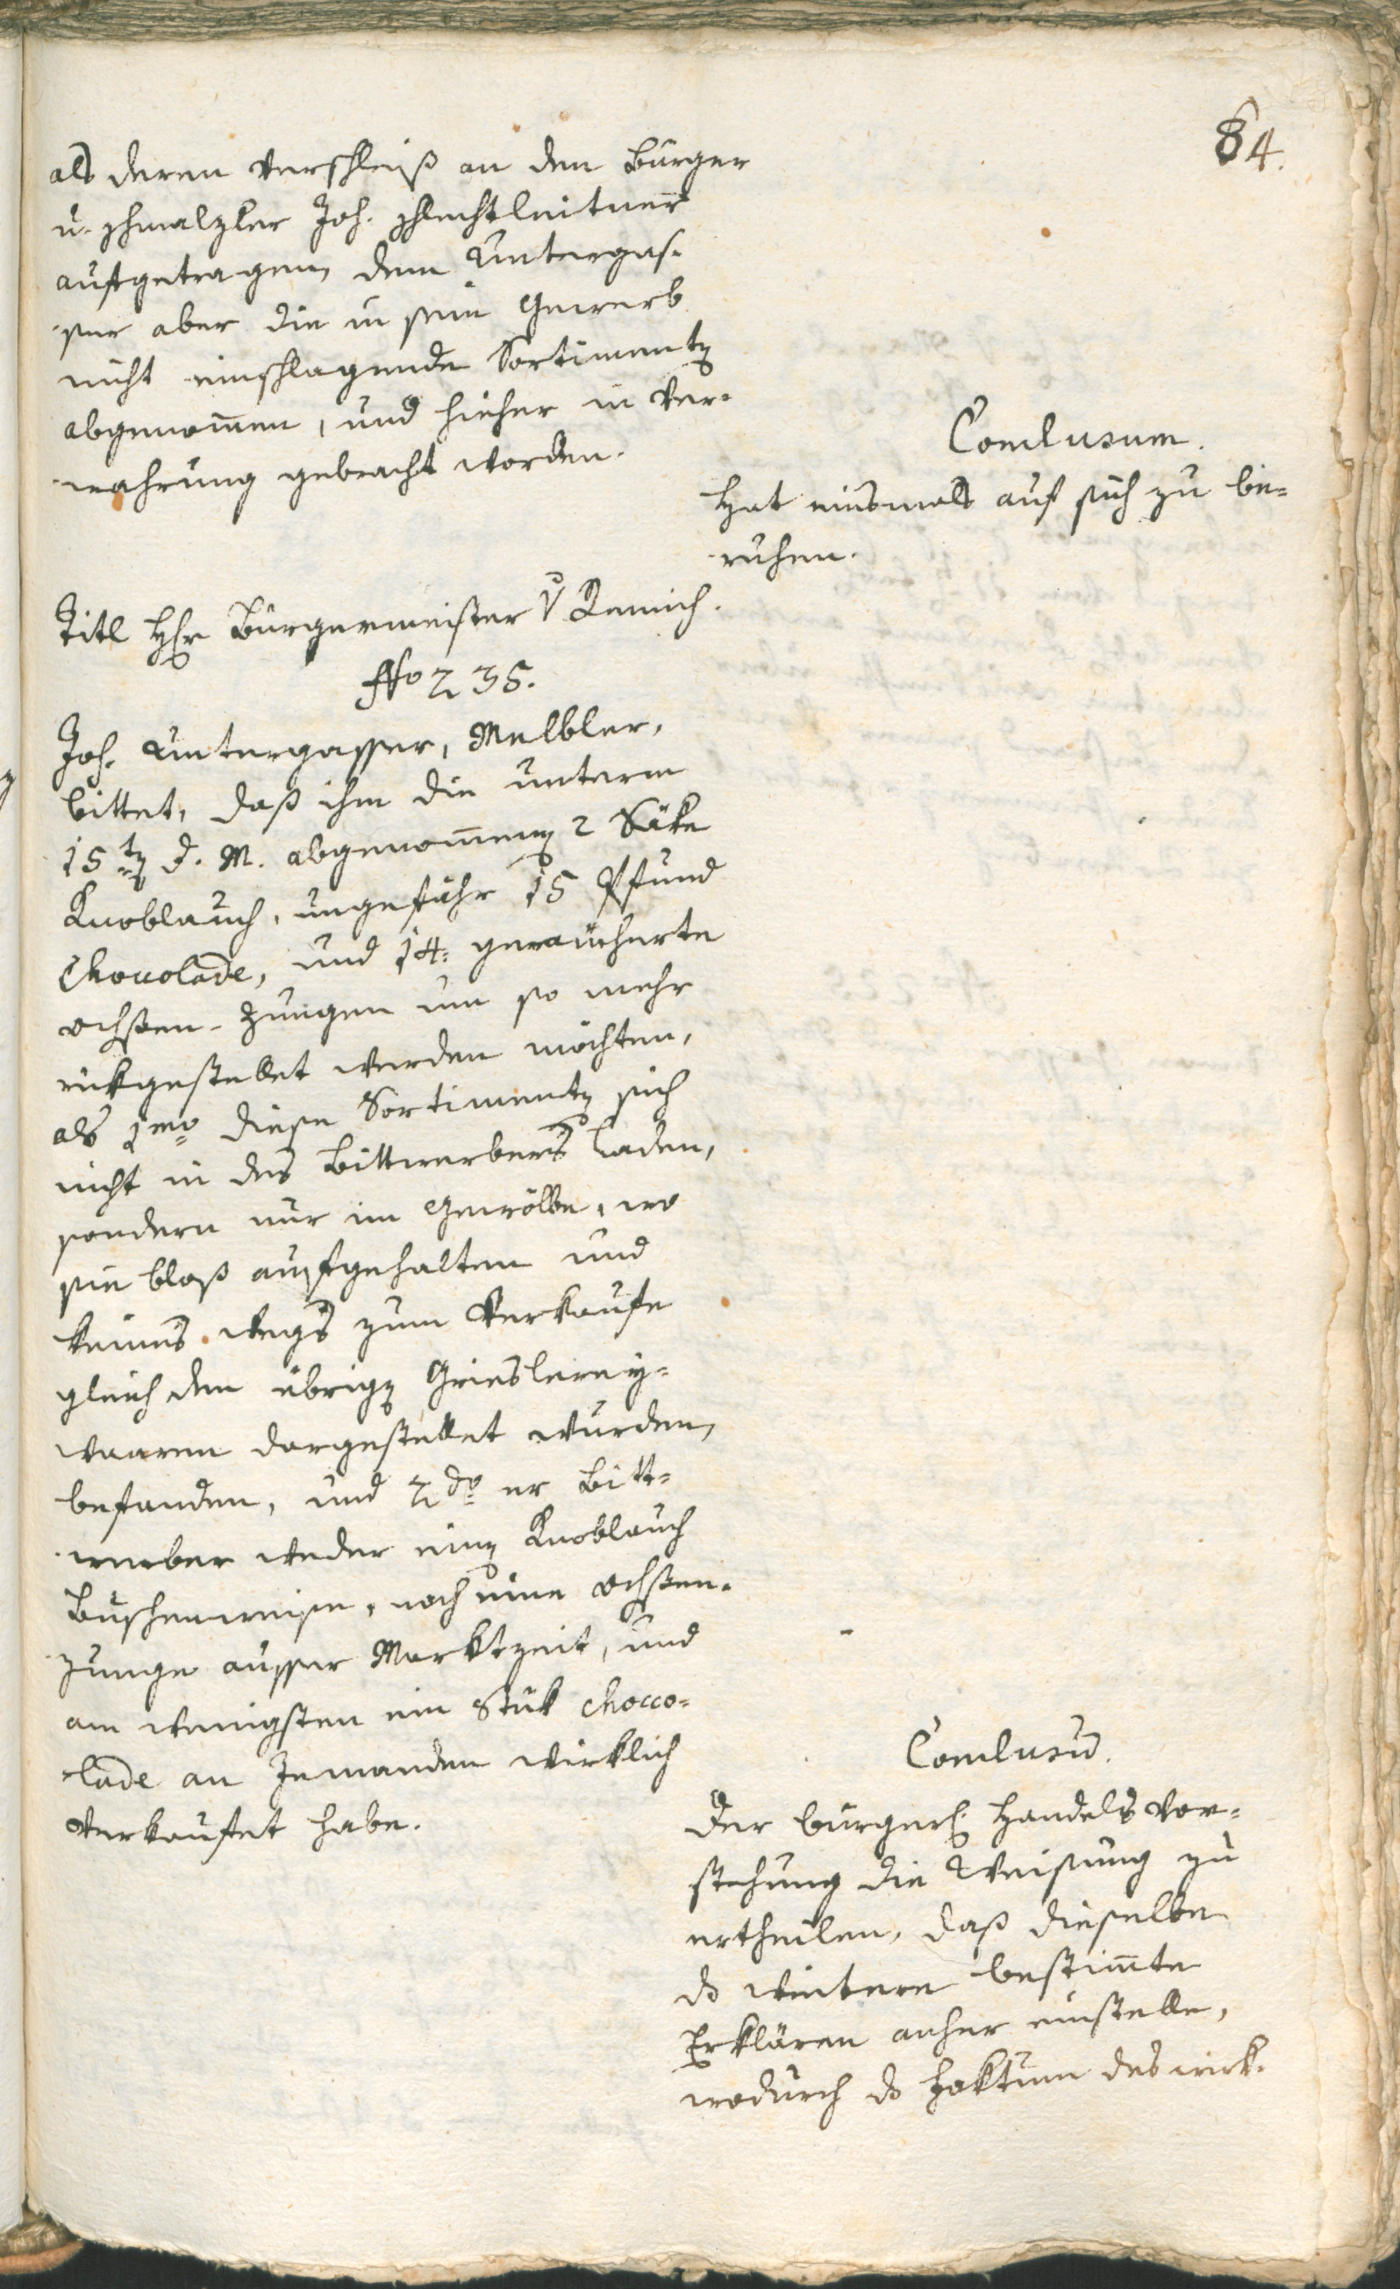 84.
als deren Verschleiß an den Burger
u. Schmalzler Joh. Schlechtleitner
auftgetragen, dem Untergas-
ser aber die in sein Gewerb
nicht einschlagende Sortimenten
abgenom̅en, und hieher in Ver-
wahrung gebracht worden.
Conclusum.
Hat einsmals auf sich zu be-
ruhen.
Titl Hr Burgermeister v Remich.
No 235.
Joh. Untergasser, Melbler,
bittet, daß ihm die unterm
15ten d. M. abgenom̅enen 2 Säke
Knoblauch, ungefähr 15 Pfund
Chocolade, und 14. geraücherte
Ochsen-Zungen um so mehr
rükgestellet werden möchten,
als 1mo diese Sortimenten sich
nicht in des Bittwerbers Laden,
sondern nur im Gewölbe, wo
sie bloß aufgehalten und
keines wegs zum Verkaufe
gleich den übrigen Grieslerey-
waaren dargestellet wurden,
befanden, und 2do er Bitt-
werber weder einen Knoblauch
Buschenweise, noch eine Ochsen-
zunge ausser Marktzeit, und
am wenigsten ein Stük Chocco-
lade an Jemanden wirklich
verkaufet habe.
Conclusu̅.
Der burgerl. Handels Vor-
stehung die Weisung zu
ertheilen, daß dieselbe
ds weitere bestim̅te
Erklären anher einstelle,
wodurch ds Faktum des wirk-